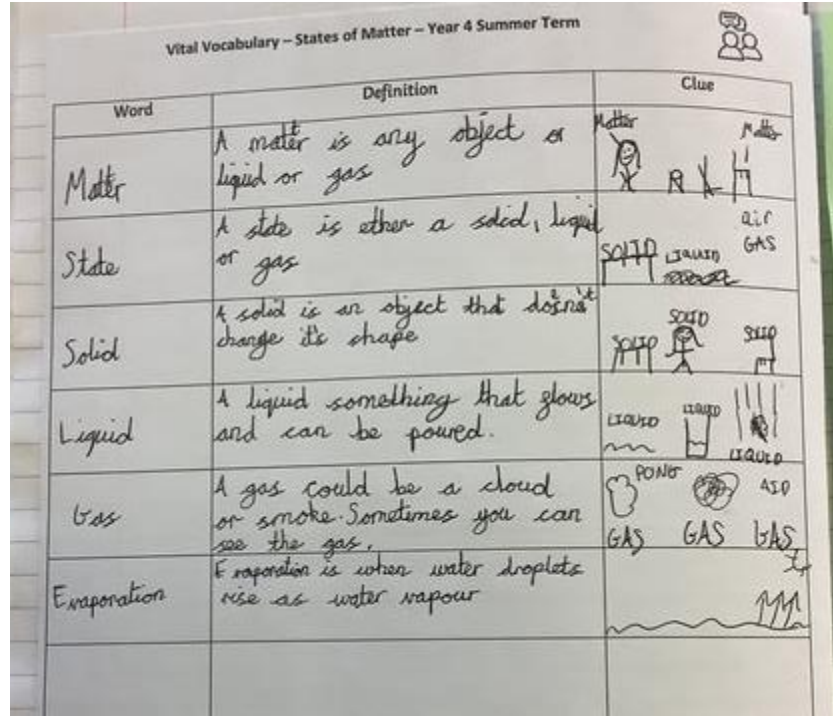 Vital Vocabulary – States of Matter – Year 4 Summer Term
Word
Definition
Clue
Matter
A mater is any object or
liquid or gas
Matter
Matter
State
A state is ether a solid, liquid
or gas
SOLID
LIQUID
air
GAS
Solid
A solid is an object that doesn't
change it's shape
SOLID
SOLID
SOLID
Liquid
A liquid something that glows
and can be poured.
LIQUID
LIQUID
LIQUID
Gas
A gas could be a cloud
or smoke. Sometimes you can
see the gas.
PONG
GAS
GAS
GAS
Evaporation
Evaporation is when water droplets
rise as water vapour